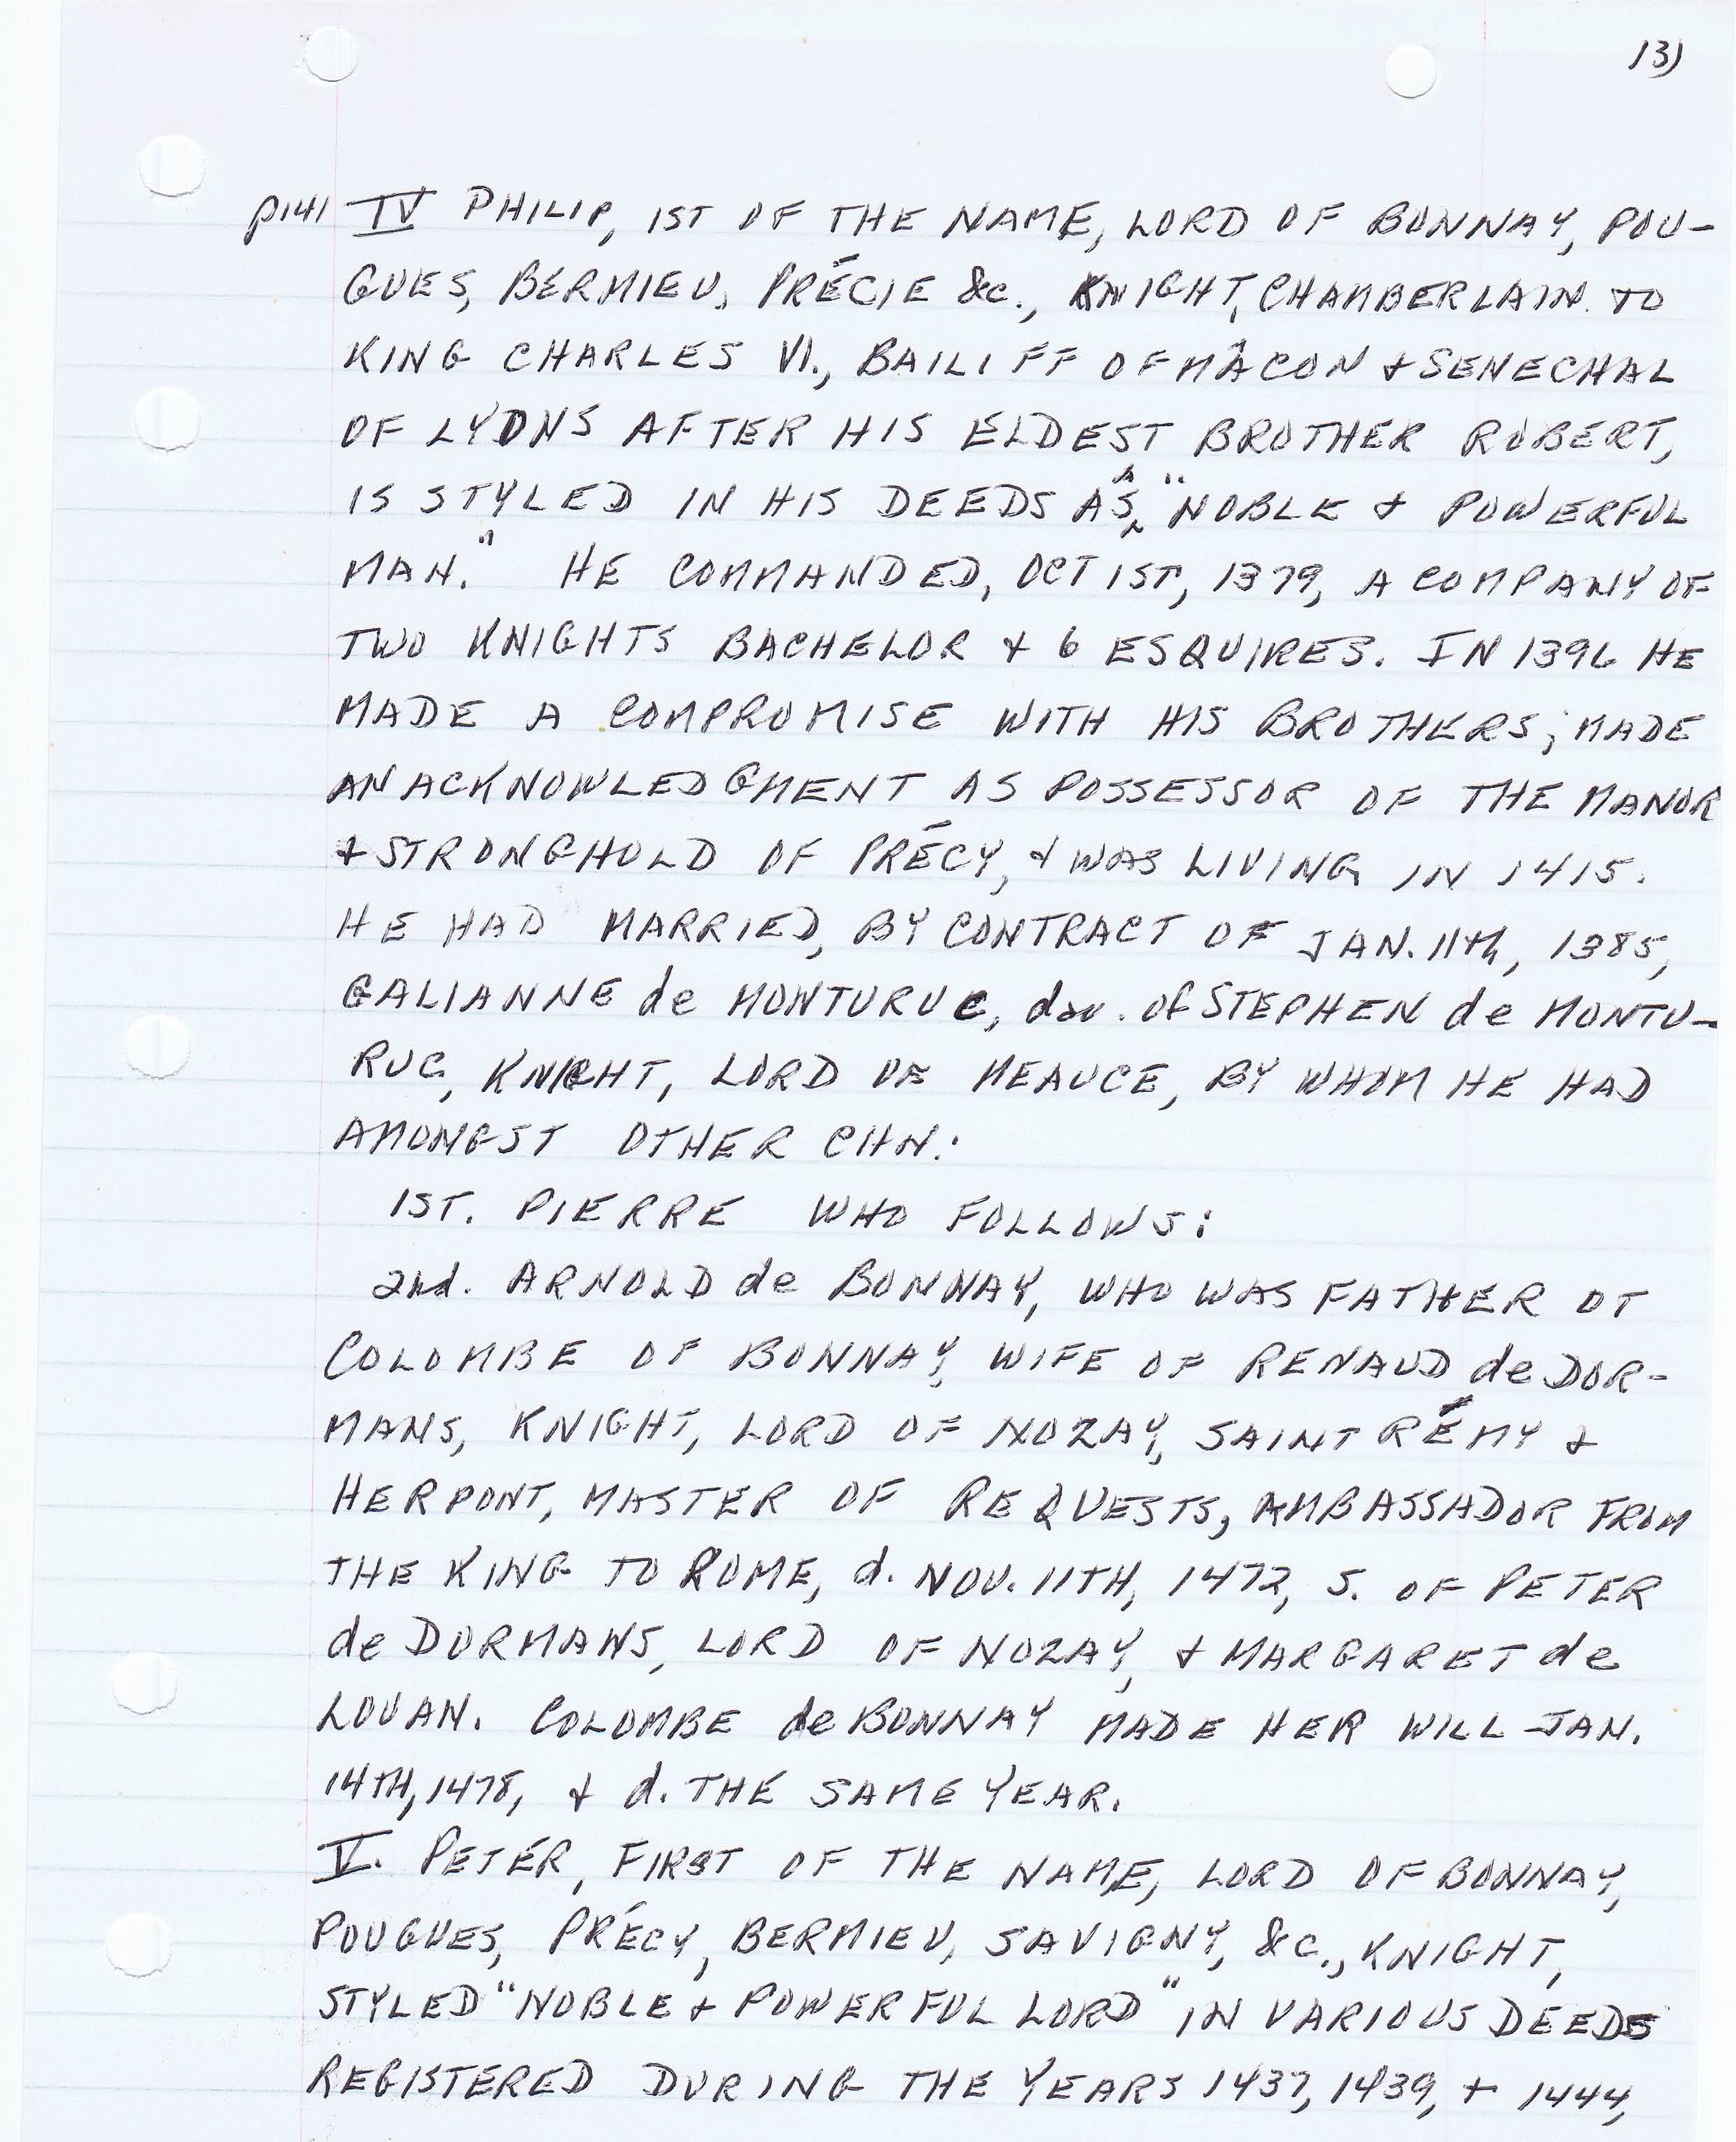 13)
p141 IV PHILIP, 1ST OF THE NAME, LORD OF BONNAY, POU-
GUES, BERMIEU, PRÉCIE &c., KNIGHT, CHAMBERLAIN TO
KING CHARLES VI., BAILIFF OF MÂCON + SENECHAL
OF LYONS AFTER HIS ELDEST BROTHER ROBERT,
IS STYLED IN HIS DEEDS AS A "NOBLE + POWERFUL
MAN." HE COMMANDED, OCT 1ST, 1379, A COMPANY OF
TWO KNIGHTS BACHELOR + 6 ESQUIRES. IN 1396 HE
MADE A COMPROMISE WITH HIS BROTHERS; MADE
AN ACKNOWLEDGMENT AS POSSESSOR OF THE MANOR
+ STRONGHOLD OF PRÉCY, + WAS LIVING IN 1415.
HE HAD MARRIED, BY CONTRACT OF JAN. 11th, 1385,
GALIANNE de MONTURUC, dau. of STEPHEN de MONTU-
RUC, KNIGHT, LORD OF MEAUCE, BY WHOM HE HAD
AMONGST OTHER CHN:
1ST. PIERRE WHO FOLLOWS:
2nd. ARNOLD de BONNAY, WHO WAS FATHER OT
COLOMBE OF BONNAY, WIFE OF RENAUD de DOR-
MANS, KNIGHT, LORD OF NOZAY, SAINT RÉMY +
HERPONT, MASTER OF REQUESTS, AMBASSADOR FROM
THE KING TO ROME, d. NOV. 11TH, 1472, S. OF PETER
de DORMANS, LORD OF NOZAY, + MARGARET de
LOUAN. COLOMBE de BONNAY MADE HER WILL JAN.
14TH, 1478, + d. THE SAME YEAR.
V. PETER, FIRST OF THE NAME, LORD OF BONNAY,
POUGUES, PRÉCY, BERMIEU, SAVIGNY, &C., KNIGHT,
STYLED "NOBLE + POWERFUL LORD" IN VARIOUS DEEDS
REGISTERED DURING THE YEARS 1437, 1439, + 1444,